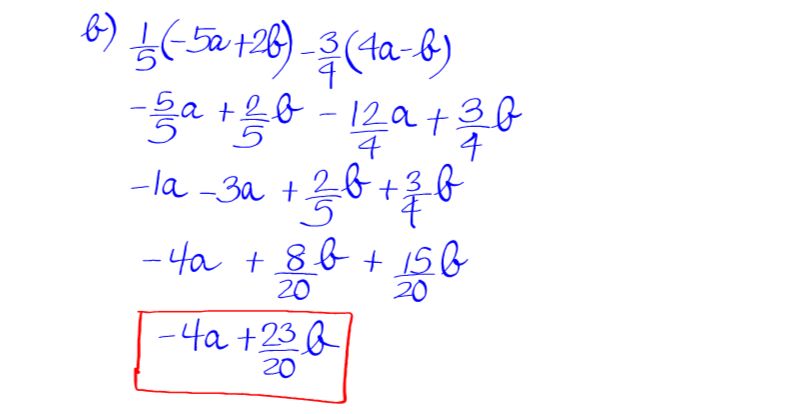 b) 1/5(-5a+2b) - 3/4(4a-b)
-5/5a + 2/5b - 12/4a + 3/4b
-1a - 3a + 2/5b + 3/4b
-4a + 8/20b + 15/20b
-4a + 23/20b